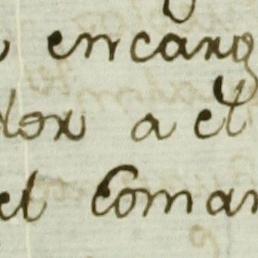 encarg
dor a el
el Coman